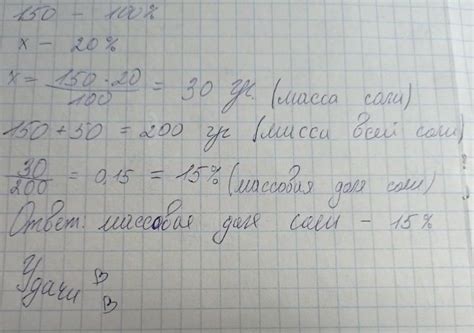 150 – 100%
x – 20%
x = 150 · 20 / 100 = 30 гр. (масса соли)
150 + 50 = 200 гр (масса всей соли)
30 / 200 = 0,15 = 15% (массовая доля соли)
Ответ: массовая доля соли – 15%
Удачи